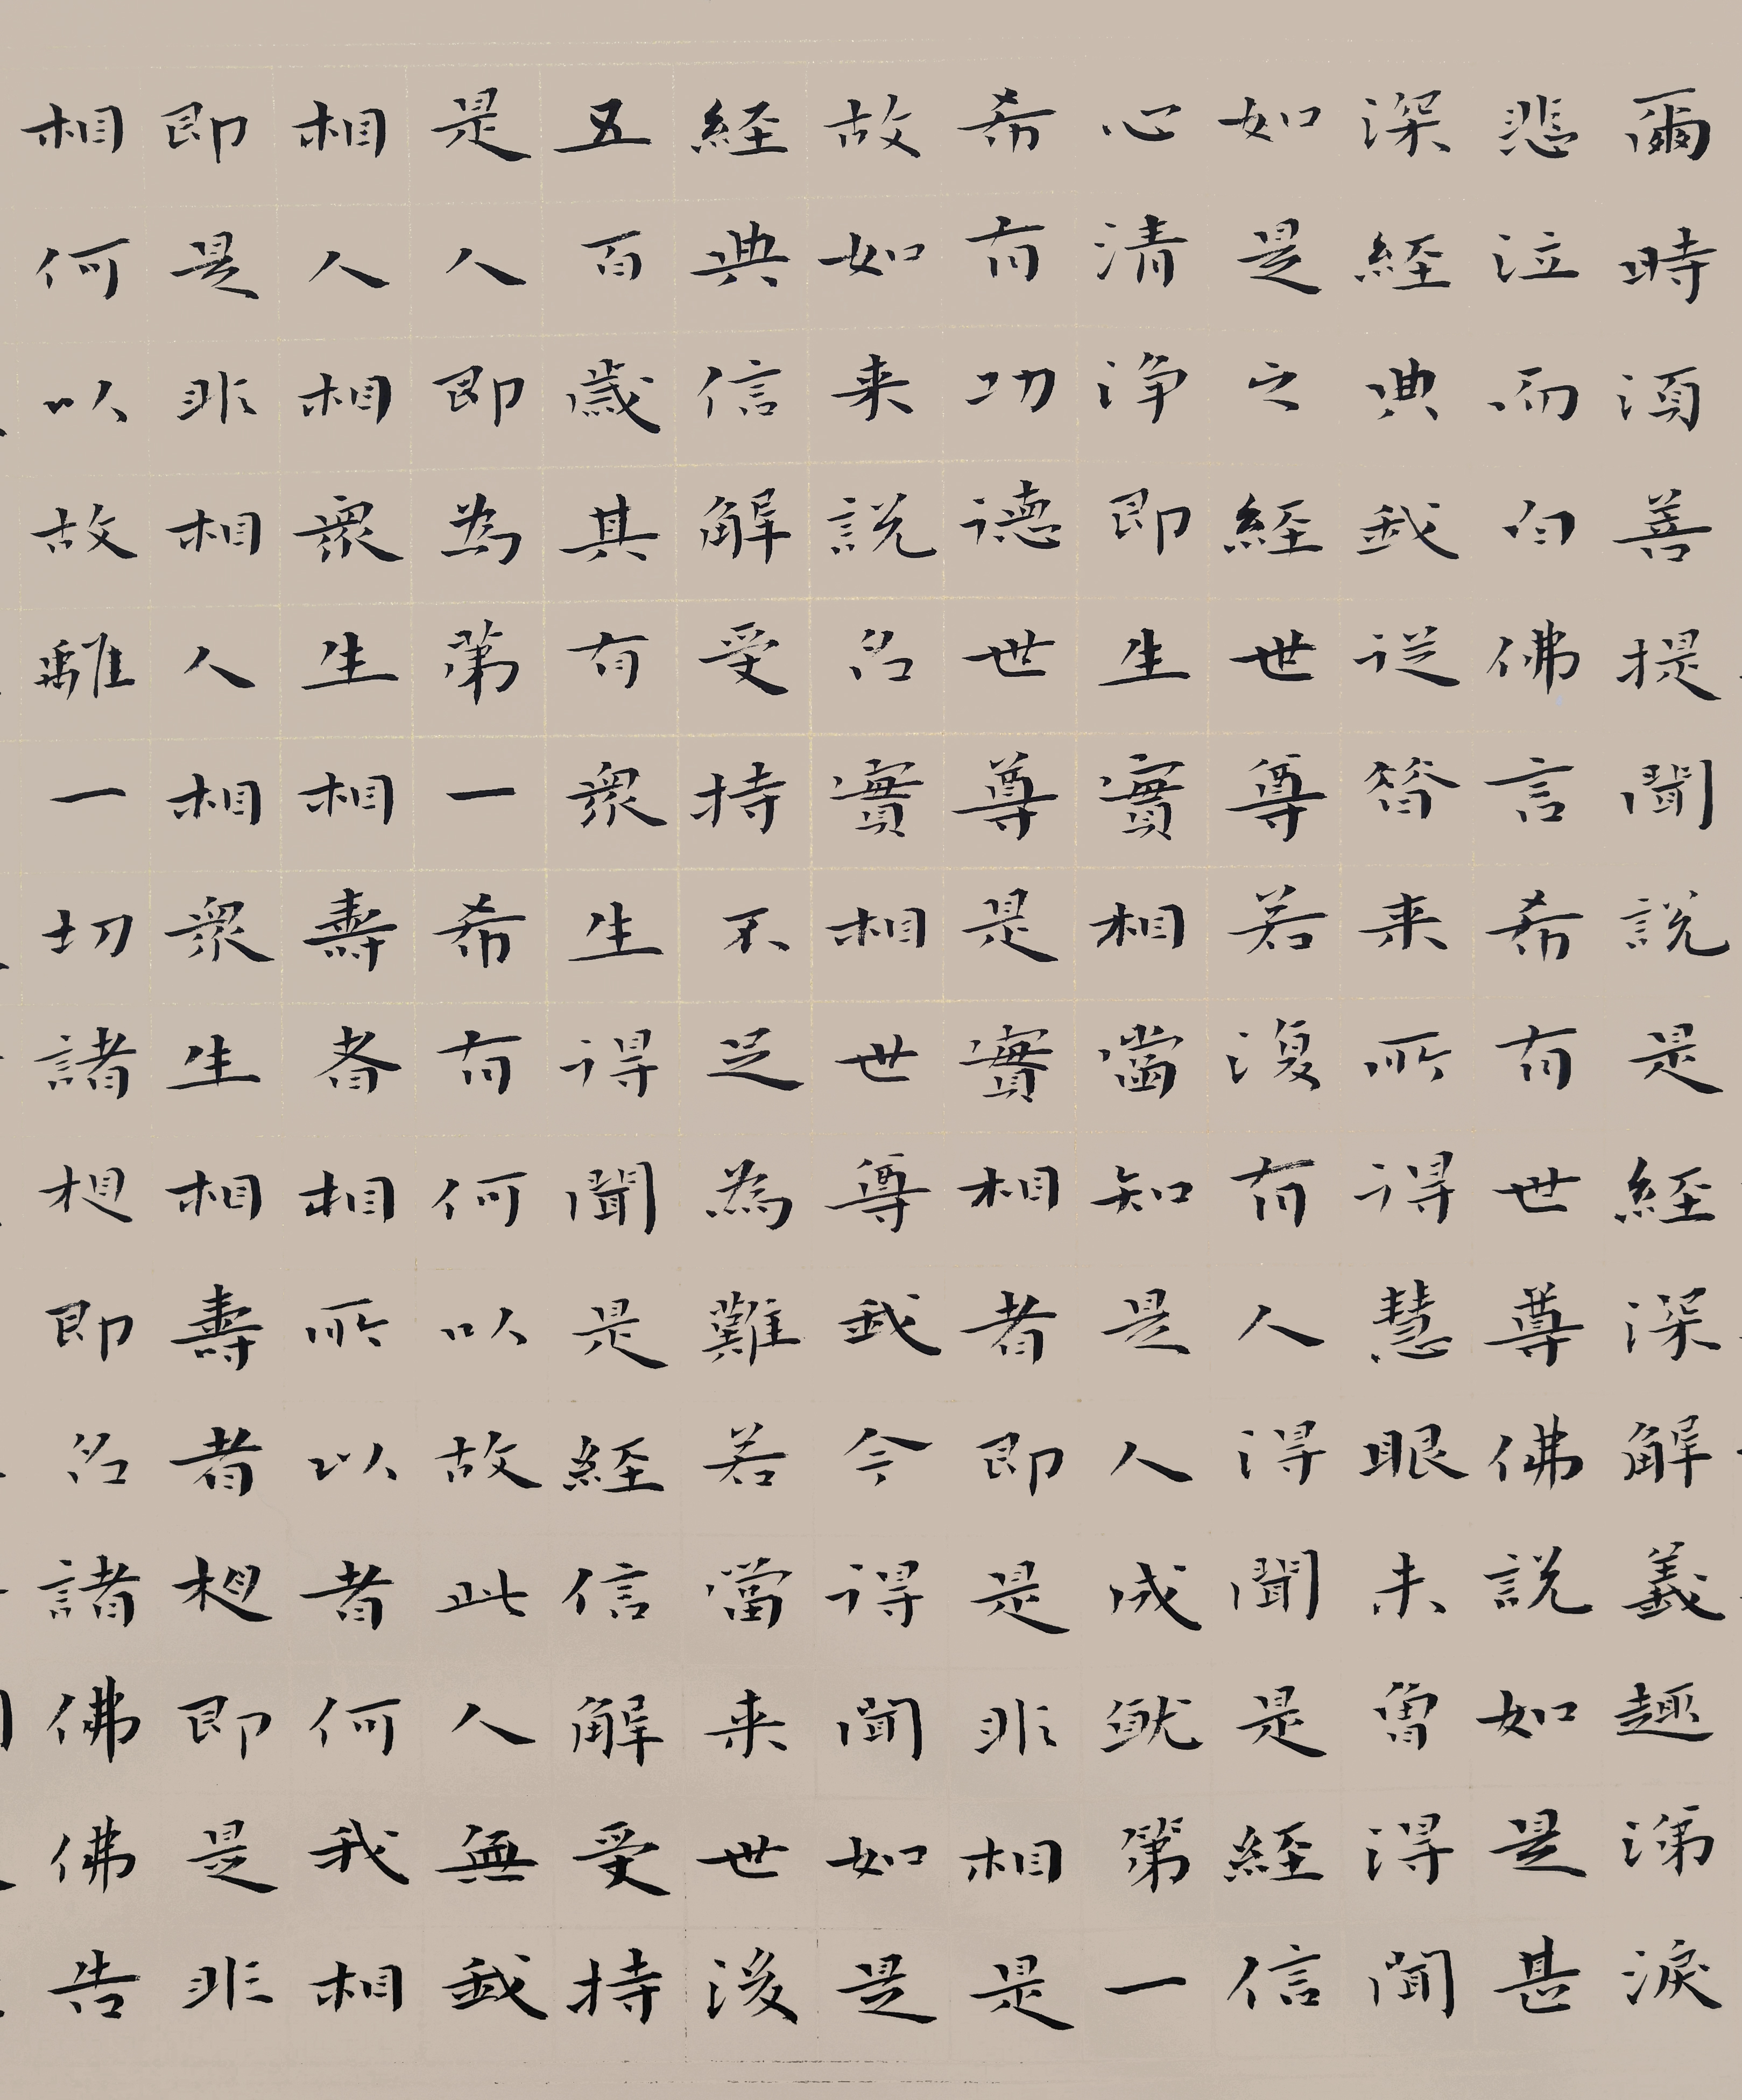 爾時須菩提聞說是經深解義趣涕淚
悲泣而白佛言希有世尊佛說如是甚
深經典我從昔來所得慧眼未曾得聞
如是之經世尊若復有人得聞是經信
心清淨即生實相當知是人成就第一
希有功德世尊是實相者即是非相是
故如来說名實相世尊我今得聞如是
經典信解受持不足為難若當来世後
五百歲其有衆生得聞是經信解受持
是人即為第一希有何以故此人無我
相人相衆生相壽者相所以者何我相
即是非相人相衆生相壽者相即是非
相何以故離一切諸相即名諸佛佛告